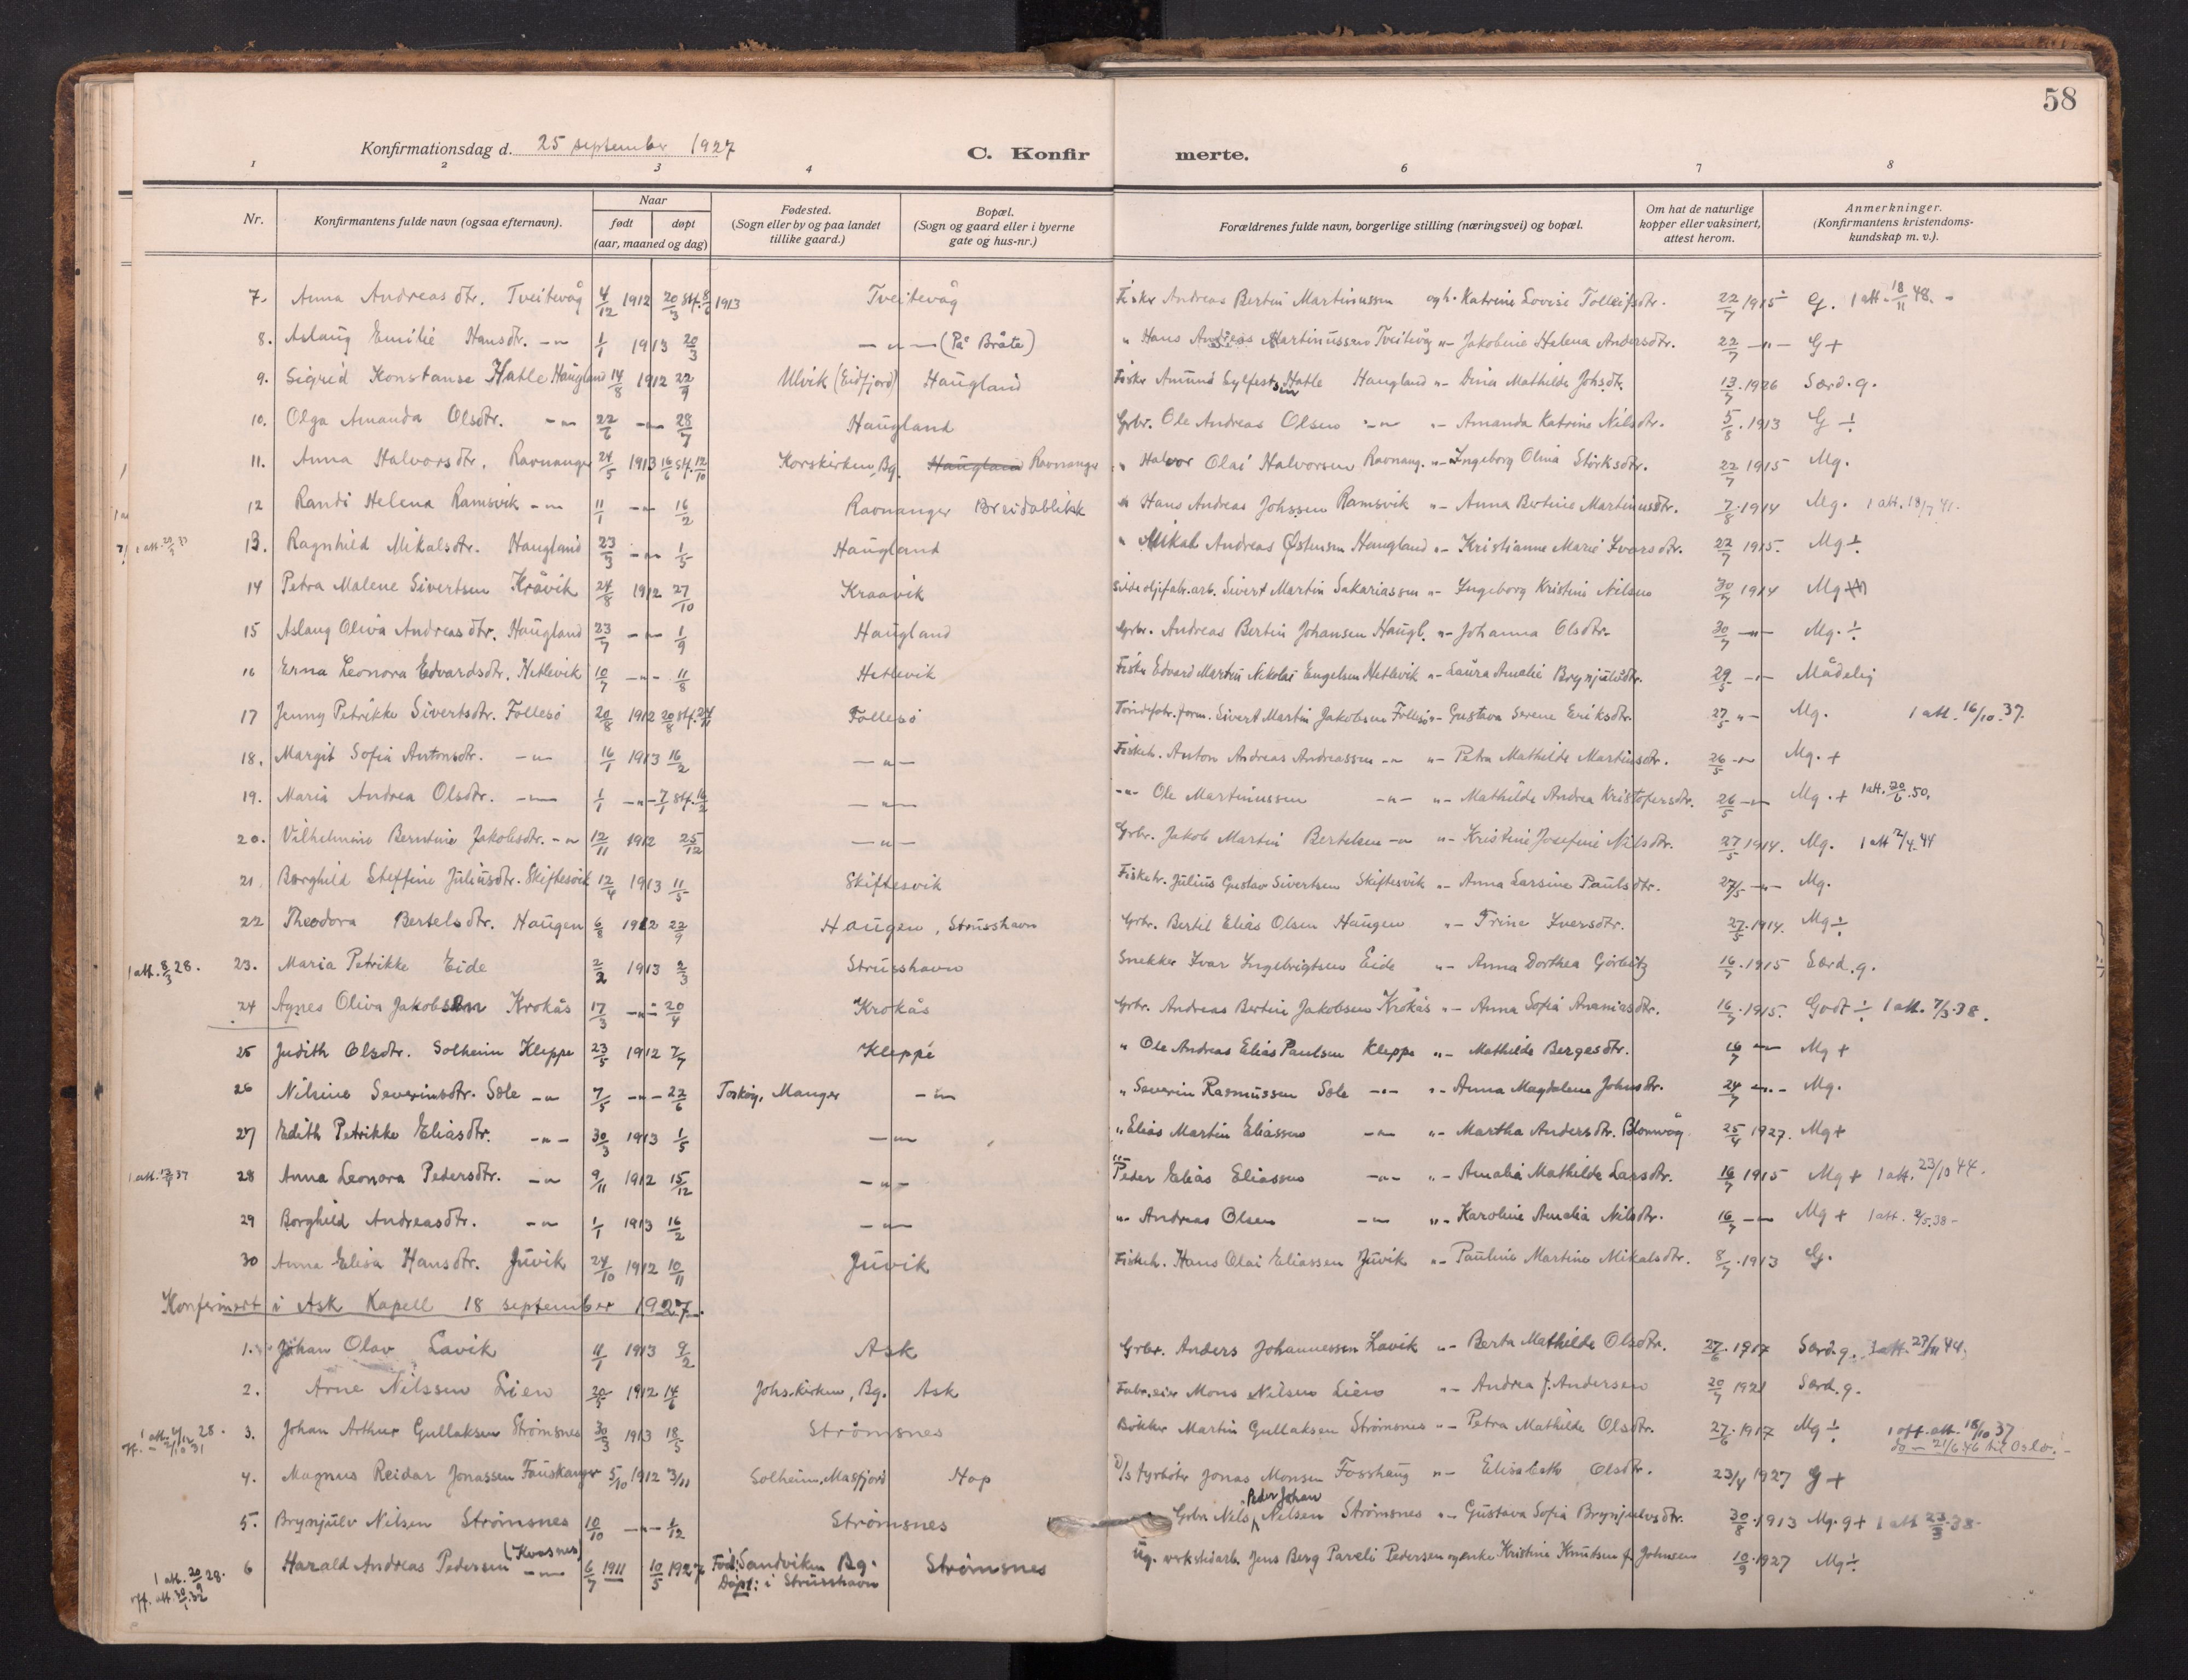 58
Konfirmationsdag d. 25 september 1927
C. Konfirmerte.
1 2 3 4 6 7 8
Nr. Konfirmantens fulde navn (ogsaa efternavn). Naar født døpt (aar, maaned og dag) Fødested. (Sogn eller by og paa landet tillike gaard.) Bopæl. (Sogn og gaard eller i byerne gate og hus-nr.) Forældrenes fulde navn, borgerlige stilling (næringsvei) og bopæl. Om hat de naturlige kopper eller vaksinert, attest herom. Anmerkninger. (Konfirmantens kristendomskundskap m. v.).
7. Anna Andreasdtr. Tveitevåg 4/12 1912 20/3 stf. 8/6 1913 Tveitevåg Fisker Andreas Bertin Martinussen og h. Katrine Lovise Tolleifsdtr. 22/7 1915 G. 1 att. 18/11 48.
8. Aslaug Emilie Hansdtr. -"- 1/1 1913 20/3 -"- (På Bråte) " Hans Andreas Martinussen Tveitevåg "- Jakobine Helena Andersdtr. 22/7 -"- G+
9. Sigrid Konstanse Hatle Haugland 14/8 1912 22/9 Ulvik (Eidfjord) Haugland Fisker Amund Sylfestsen Hatle Haugland "- Dina Mathilde Johsdtr. 13/7 1926 Særd. g.
10. Olga Amanda Olsdtr. -"- 22/6 -"- 28/7 Haugland Grbr. Ole Andreas Olsen -"- "- Amanda Katrine Nilsdtr. 5/8 1913 G ÷
11. Anna Halvorsdtr. Ravnanger 24/5 1913 16/6 stf. 12/10 Korskirken, Bg. Haugland Ravnanger " Halvor Olai Halvorsen Ravnang. "- Ingeborg Olina Störksdtr. 22/7 1915 Mg.
12 Randi Helena Ramsvik -"- 11/1 -"- 16/2 Ravnanger Breidablikk " Hans Andreas Johssen Ramsvik "- Anna Bertine Martinusdtr. 7/8 1914 Mg. 1 att. 18/7 41.
1 att. 20/3 33 13. Ragnhild Mikalsdtr. Haugland 23/3 -"- 1/5 Haugland " Mikal Andreas Østensen Haugland "- Kristianne Marie Ivarsdtr. 22/7 1915. Mg ÷
14 Petra Malene Sivertsen Kråvik 24/8 1912 27/10 Kraavik Sildoljefabr.arb. Sivert Martin Sakariassen "- Ingeborg Kristine Nilsen 30/7 1914 Mg
15 Aslaug Oliva Andreasdtr. Haugland 23/7 -"- 1/9 Haugland Grbr. Andreas Bertin Johansen Haugl. "- Johanna Olsdtr. 30/7 -"- Mg. ÷
16 Erna Leonora Edvardsdtr. Hetlevik 10/7 -"- 11/8 Hetlevik Fisker Edvard Martin Nikolai Engelsen Hetlevik "- Laura Amalie Brynjulvsdtr. 29/5 -"- Mådelig
17 Jenny Petrikke Sivertsdtr. Follesö 20/8 1912 20/8 stf. 24/11 Follesö Töndefabr.form. Sivert Martin Jakobsen Follesö "- Gustava Serene Eriksdtr. 27/5 "- Mg. 1 att. 16/10.37.
18. Margit Sofia Antonsdtr. -"- 16/1 1913 16/2 -"- Fiskeh. Anton Andreas Andreassen -"- "- Petra Mathilde Martinsdtr. 26/5 -"- Mg. +
19. Maria Andrea Olsdtr. -"- 1/1 -"- 7/1 stf. 16/2 -"- -"- Ole Martinussen -"- "- Mathilde Andrea Kristofersdtr. 26/5 -"- Mg. + 1 att. 20/6.50.
20. Vilhelmine Berntine Jakobsdtr. -"- 12/11 1912 25/12 -"- Grbr. Jakob Martin Bertelsen -"- "- Kristine Josefine Nilsdtr. 27/5 1914. Mg. 1 att 2/4.44
21. Borghild Steffine Juliusdtr. Skiftesvik 12/4 1913 11/5 Skiftesvik Fisketr. Julius Gustav Sivertsen Skiftesvik "- Anna Larsine Paulsdtr. 27/5 -"- Mg.
22 Theodora Bertelsdtr. Haugen 6/8 1912 22/9 Haugen, Strusshavn Grbr. Bertel Elias Olsen Haugen "- Trine Iversdtr. 27/5 1914. Mg ÷
1 att. 8/3 28. 23. Maria Petrikke Eide 2/2 1913 2/3 Strusshavn Snekker Ivar Ingebrigtsen Eide "- Anna Dorthea Görbitz 16/7 1915 Særd. g.
24 Agnes Oliva Jakobsen Krokås 17/3 -"- 20/4 Krokås Grbr. Andreas Bertin Jakobsen Krokås "- Anna Sofia Ananiasdtr. 16/7 1915. Godt ÷ 1 att. 7/3.38.
25 Judith Olsdtr. Solheim Kleppe 23/5 1912 7/7 Kleppe " Ole Andreas Elias Paulsen Kleppe "- Mathilde Bergesdtr. 16/7 -"- Mg +
26 Nilsine Severinsdtr. Sæle -"- 7/5 -"- 22/6 Toskøy, Manger -"- " Severin Rasmussen Sæle -"- "- Anna Magdalena Johnsdtr. 24/7 -"- Mg.
27 Edith Petrikke Eliasdtr. -"- 30/3 1913 1/5 -"- " Elias Martin Eliassen -"- "- Martha Andersdtr. Blomvåg 25/4 1927. Mg +
28 Anna Leonora Pedersdtr. -"- 9/11 1912 15/12 -"- " Peder Elias Eliassen -"- "- Amalia Mathilde Larsdtr. 16/7 1915 Mg + 1 att. 23/10 44.
29 Borghild Andreasdtr. -"- 1/1 1913 16/2 -"- "- Andreas Olsen -"- "- Karoline Amalia Nilsdtr. 16/7 -"- Mg + 1 att. 2/5.38 -
30 Anna Elisa Hansdtr. Juvik 24/10 1912 10/11 Juvik Fiskeh. Hans Olai Eliassen Juvik "- Pauline Martine Mikalsdtr. 8/7 1913 G.
Konfirmert i Ask Kapell 18 september 1927.
1. Johan Olav Lavik 4/1 1913 9/2 Ask Grbr. Anders Johannessen Lavik "- Berta Mathilde Olsdtr. 27/6 1917 Særd. g. 1 att. 27/11 44.
2. Arne Nilssen Lien 20/5 1912 14/6 Johs.kirken, Bg. Ask Fabr.eier Mons Nilsen Lien "- Andrea f. Andersen 20/7 1921 Særd. g.
3. Johan Arthur Gullaksen Strömsnes 30/3 1913 18/5 Strömsnes Bökker Martin Gullaksen Strömsnes "- Petra Mathilde Olsdtr. 27/6 1917 Mg ÷ 1 off. att. 16/10 37
do — 21/6.46 til Oslo.
4. Magnus Reidar Jonassen Fauskanger 5/10 1912 3/11 Solheim, Masfjord Hop D/s fyrböter Jonas Monsen Fosshaug "- Elisabeth Olsdtr. 23/4 1927 G +
5. Brynjulv Nilsen Strömsnes 10/10 -"- 1/12 Strömsnes Grbr. Nils Peder Johan Nilsen Strömsnes "- Gustava Sofia Brynjulvsdtr. 30/8 1913 Mg. g + 1 att 23/3.38-
1 att. 20/9 28. 6 Harald Andreas Pedersen (Kvasnes) -"- 6/7 1911 10/5 1927 Född: Sandviken Bg. Strömsnes Ug. verkstedarb. Jens Berg Pareli Pedersen og enke Kristine Knutsen f. Johnsen 10/9 1927 Mg ÷
Döpt: i Strusshavn